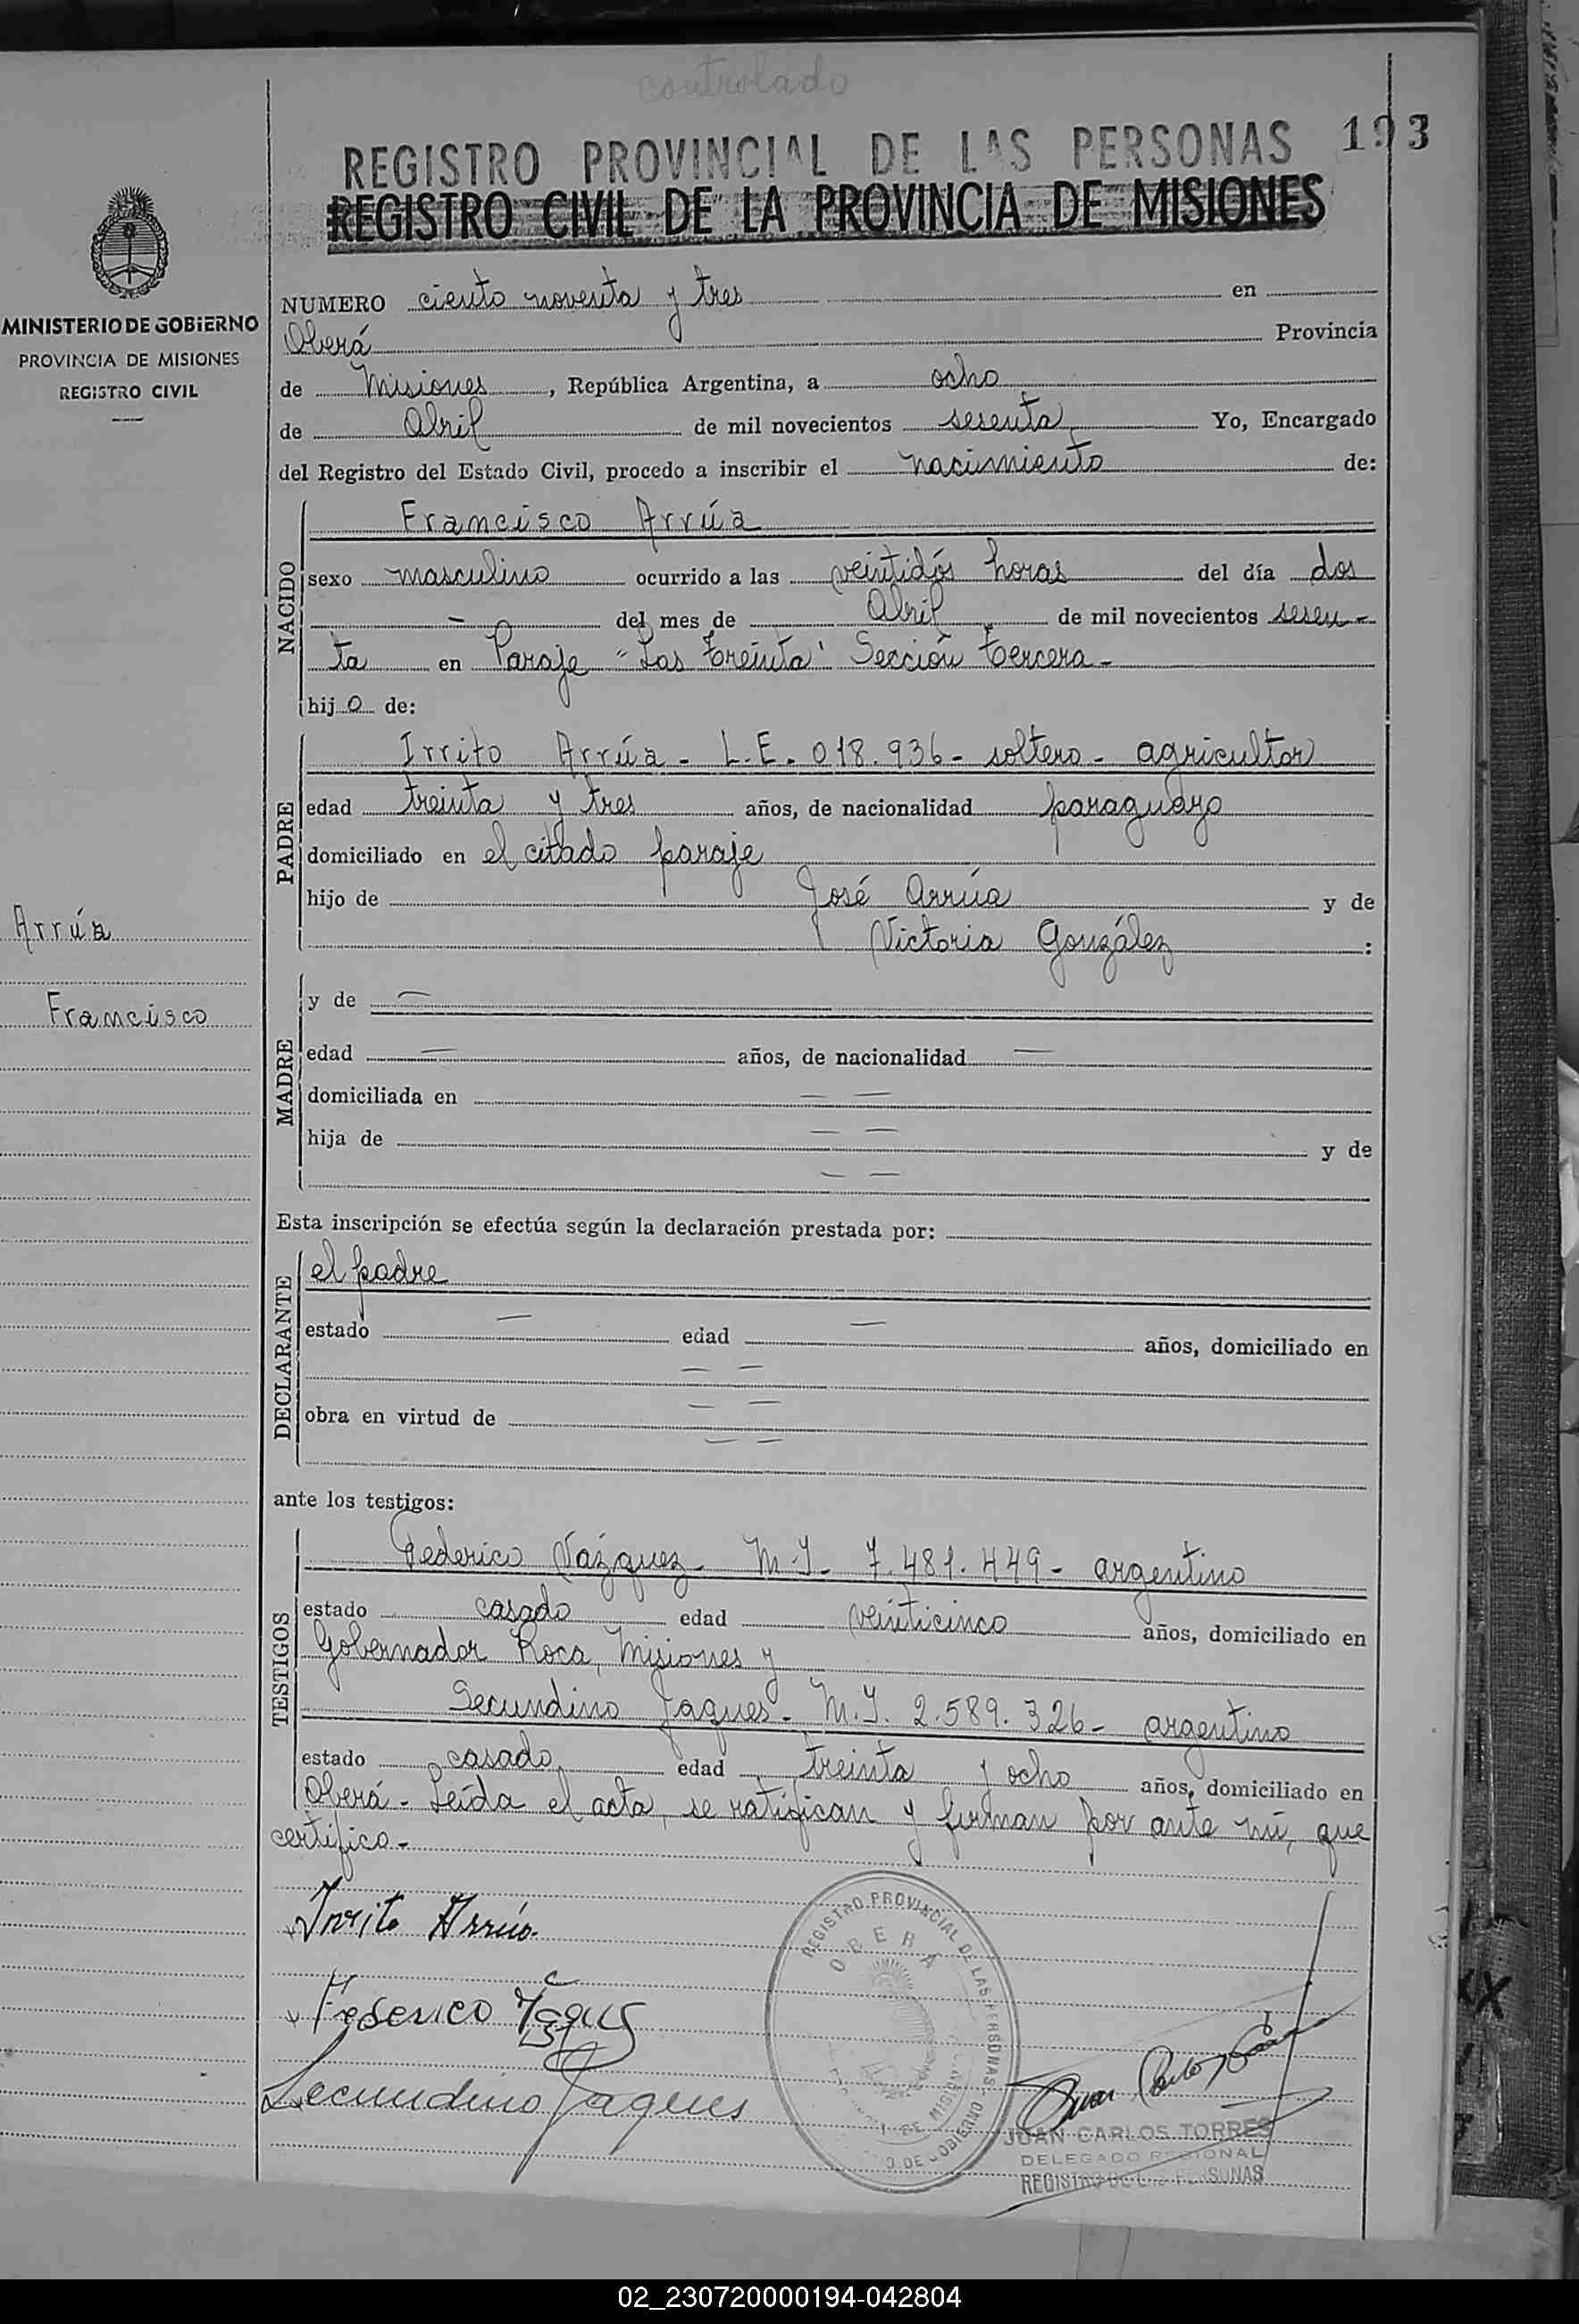 controlado
REGISTRO PROVINCIAL DE LAS PERSONAS 193
REGISTRO CIVIL DE LA PROVINCIA DE MISIONES
MINISTERIO DE GOBIERNO
PROVINCIA DE MISIONES
REGISTRO CIVIL
NUMERO ciento noventa y tres en
Oberá Provincia
de Misiones, República Argentina, a ocho
de Abril de mil novecientos sesenta, Yo, Encargado
del Registro del Estado Civil, procedo a inscribir el nacimiento de:
NACIDO
Francisco Arrúa
sexo masculino ocurrido a las veintidós horas del día dos
- del mes de Abril de mil novecientos sesen-
ta en Paraje "Las Treinta" Sección tercera-
hijo de:
PADRE
Irrito Arrúa - L.E. 018.936 - soltero - agricultor
edad treinta y tres años, de nacionalidad paraguayo
domiciliado en el citado paraje
hijo de José Arrúa y de
Victoria González :
Arrúa
Francisco
MADRE
y de —
edad — años, de nacionalidad —
domiciliada en — —
hija de — — y de
— —
Esta inscripción se efectúa según la declaración prestada por:
DECLARANTE
el padre
estado — edad — años, domiciliado en
— —
obra en virtud de — —
— —
ante los testigos:
TESTIGOS
Federico Vázquez - M.I. 7.481.449 - argentino
estado casado edad veinticinco años, domiciliado en
Gobernador Roca, Misiones y
Secundino Jaques - M.I. 2.589.326 - argentino
estado casado edad treinta y ocho años, domiciliado en
Oberá - Leída el acta, se ratifican y firman por ante mí, que
certifico.-
Irrito Arrúa
Federico
Secundino Jaques
REGISTRO PROVINCIAL DE LAS PERSONAS
OBERÁ
JUAN CARLOS TORRES
DELEGADO REGIONAL
REGISTRO DE LAS PERSONAS
02_230720000194-042804